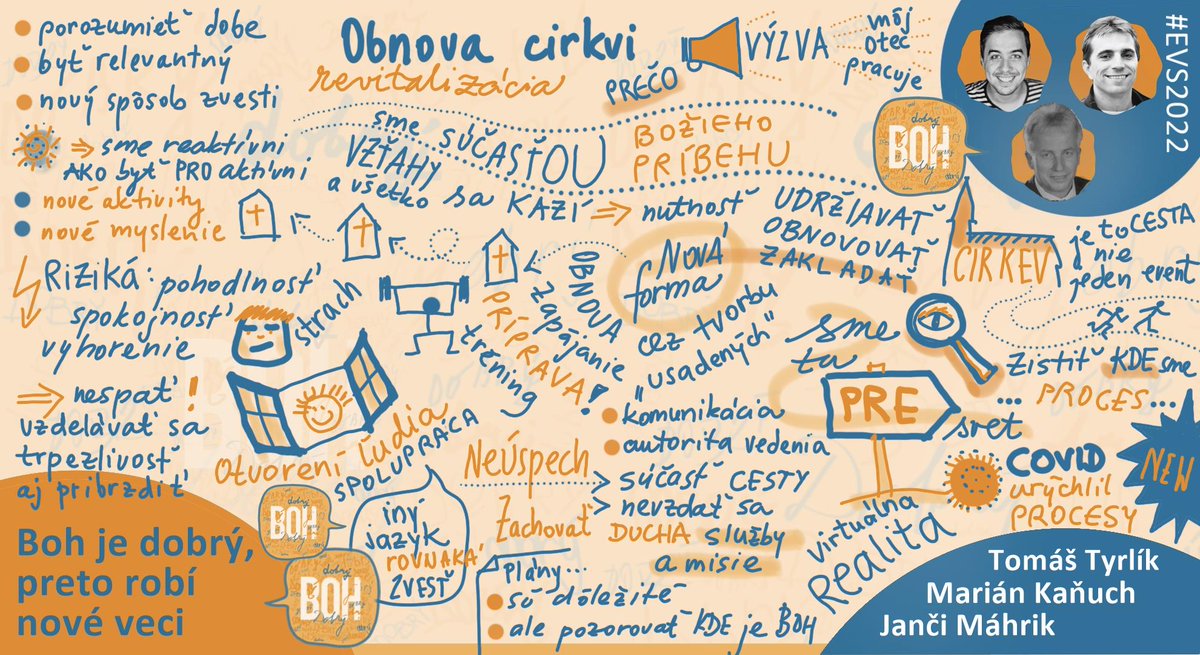 porozumieť dobe
byť relevantný
nový spôsob zvesti
⇒ sme reaktívni
AKO byť PRO aktívni
nové aktivity
nové myslenie
RIZIKÁ: pohodlnosť
spokojnosť
vyhorenie
⇒ nespať !
vzdelávať sa
trpezlivosť,
aj pribrzdiť
Boh je dobrý,
preto robí
nové veci
Obnova cirkvi
revitalizácia
PREČO
VÝZVA
môj
otec
pracuje
#EVS2022
sme SÚČASŤOU
BOŽIEHO
PRÍBEHU
VZŤAHY
a všetko sa KAZÍ ⇒ nutnosť
UDRŽIAVAŤ
OBNOVOVAŤ
ZAKLADAŤ
dobrý
BOH
CIRKEV
je to CESTA
nie
jeden event
strach
tréning
PRÍPRAVA!
zapájanie
OBNOVA
NOVÁ
forma
cez tvorbu
„usadených"
komunikácia
autorita vedenia
Otvorení ľudia
SPOLUPRÁCA
Neúspech
súčasť CESTY
nevzdať sa
Zachovať
DUCHA služby
a misie
BOH
dobrý
BOH
iný
jazyk
ROVNAKÁ
ZVESŤ
Plány...
sú dôležité
ale pozorovať KDE je BOH
sme
tu
PRE
svet
zistiť KDE sme
... PROCES...
COVID
urýchlil
PROCESY
NEW
virtuálna
realita
Tomáš Tyrlík
Marián Kaňuch
Janči Máhrik